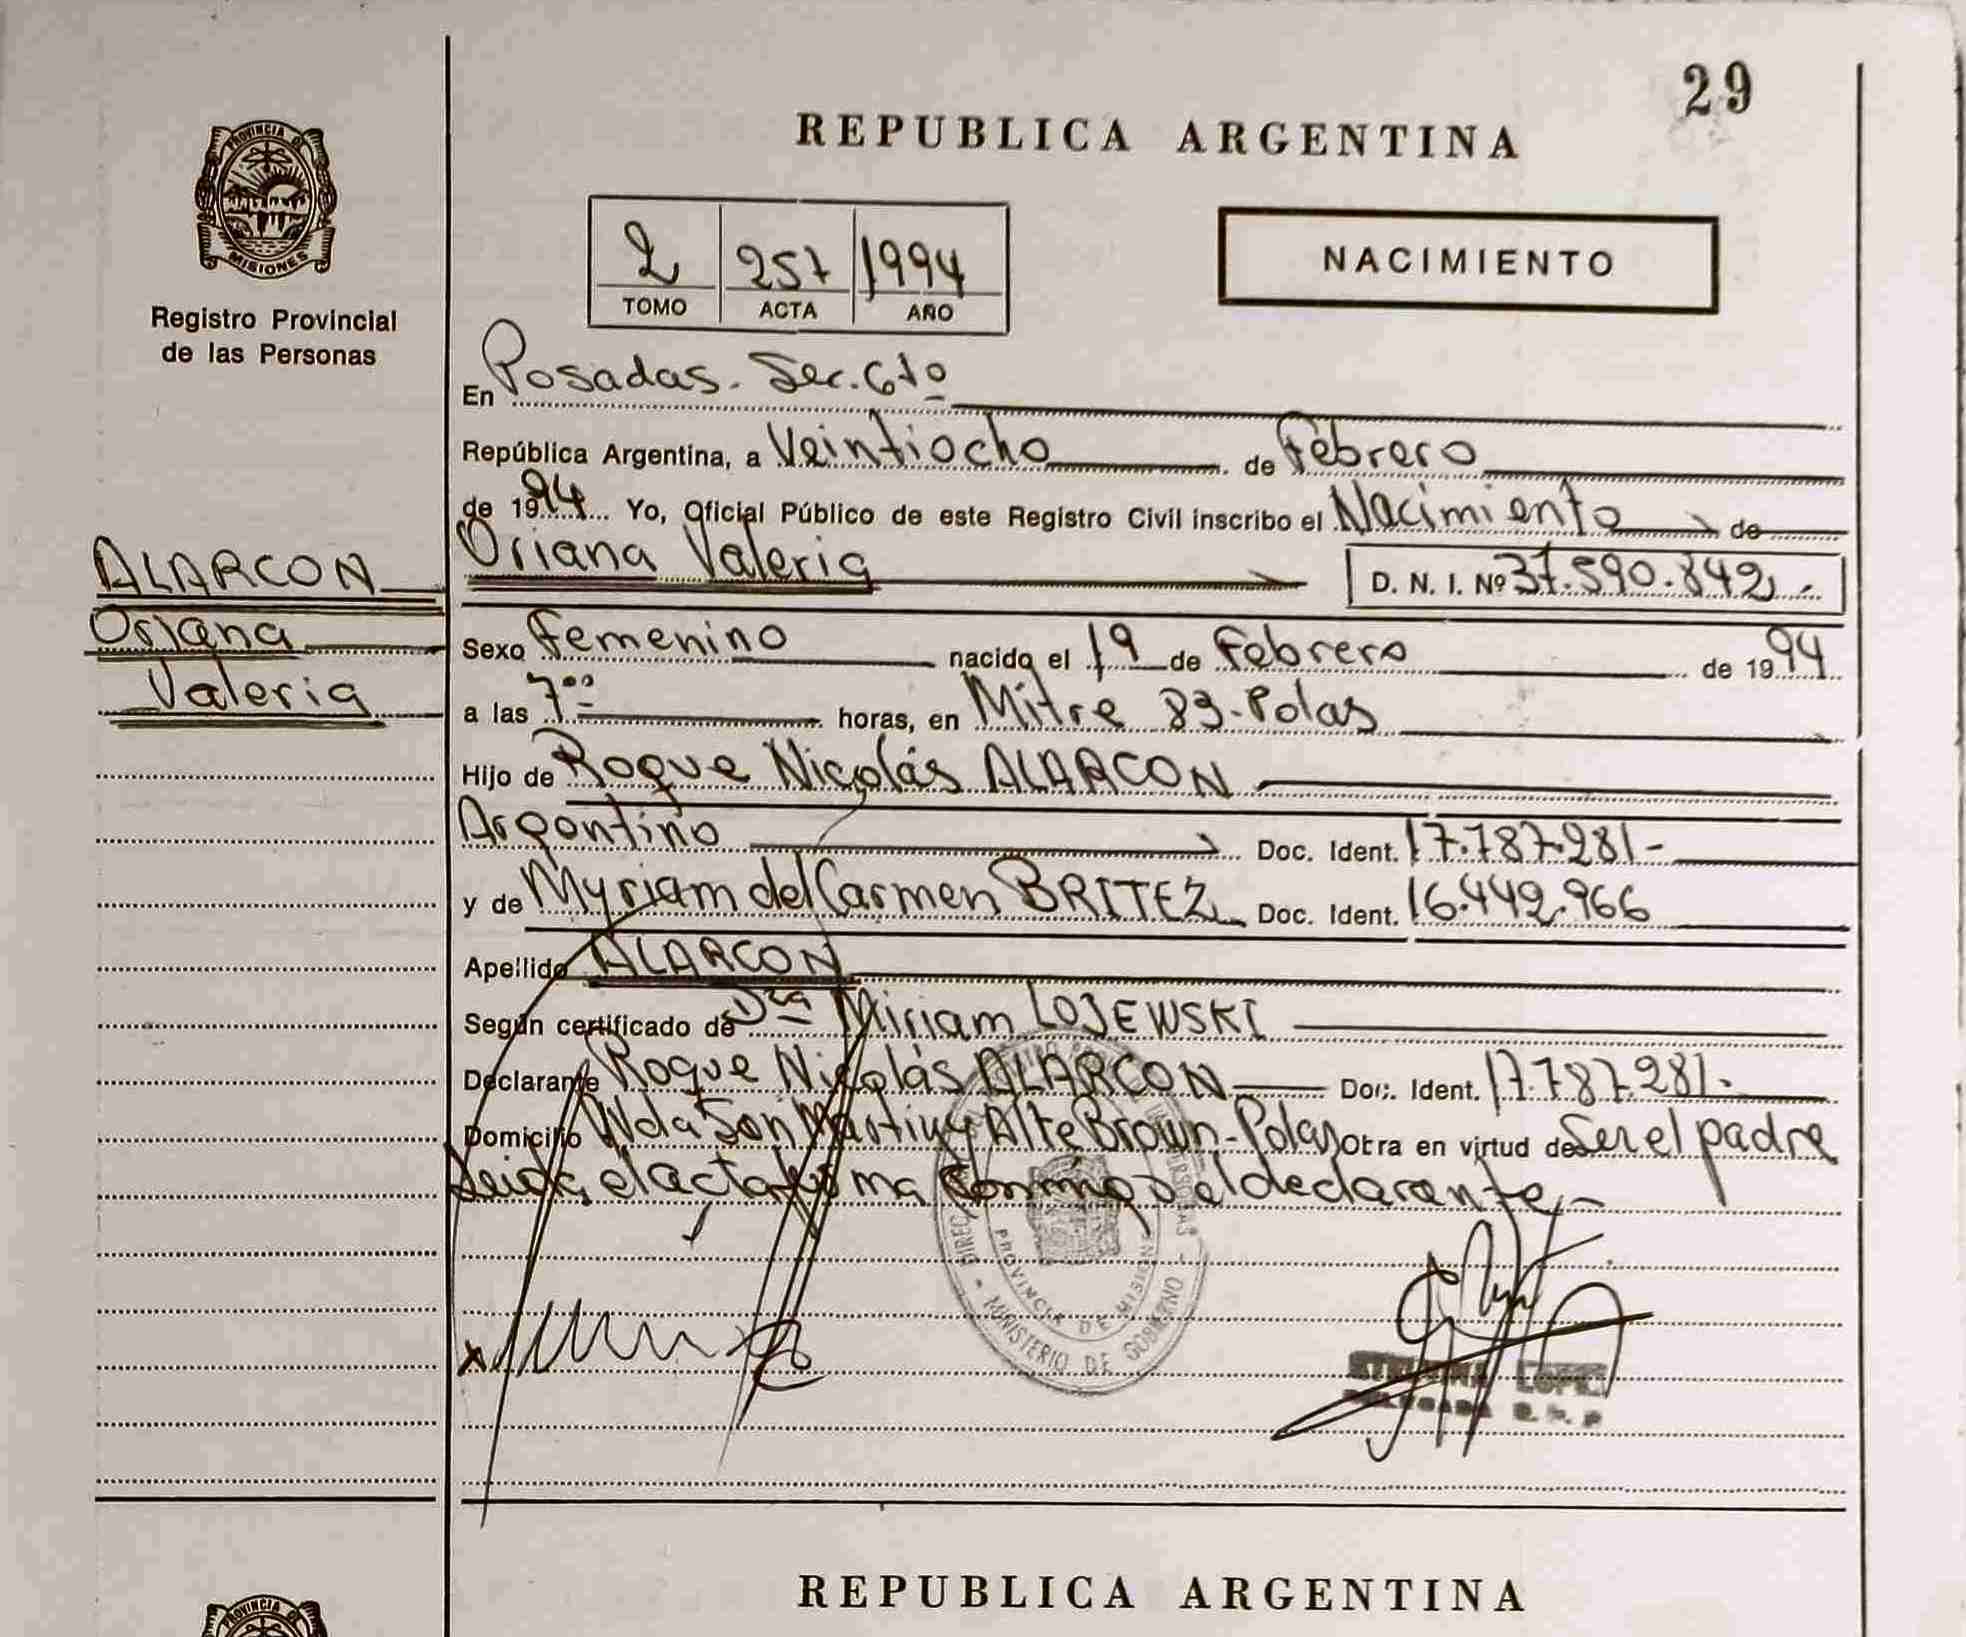 29
REPUBLICA ARGENTINA
PROVINCIA DE
MISIONES
Registro Provincial
de las Personas
2 257 1994
TOMO ACTA AÑO
NACIMIENTO
En Posadas. Sec. 6ta
República Argentina, a Veintiocho de Febrero
de 1994 Yo, Oficial Público de este Registro Civil inscribo el Nacimiento de
Oriana Valeria D. N. I. Nº 37.590.842.-
ALARCON
Oriana
Valeria
Sexo Femenino nacido el 19 de Febrero de 1994
a las 7 00 horas, en Mitre 83-Pdas
Hijo de Roque Nicolás ALARCON
Argentino Doc. Ident. 17.787.281-
y de Myriam del Carmen BRITEZ Doc. Ident. 16.442.966
Apellido ALARCON
Según certificado de Dra Miriam LOJEWSKI
Declarante Roque Nicolás ALARCON Doc. Ident. 17.787.281.
Domicilio Avda San Martin y Alte Brown-Pdas Obra en virtud de Ser el padre
Leida el acta firma conmigo el declarante.-
PROVINCIA DE MISIONES
MINISTERIO DE GOBIERNO
LOPEZ
REPUBLICA ARGENTINA
PROVINCIA DE